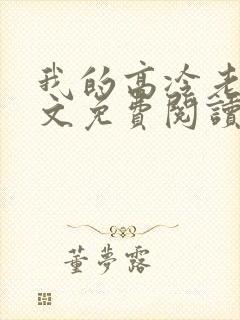 我的高冷老
文免費閱讀
董夢露